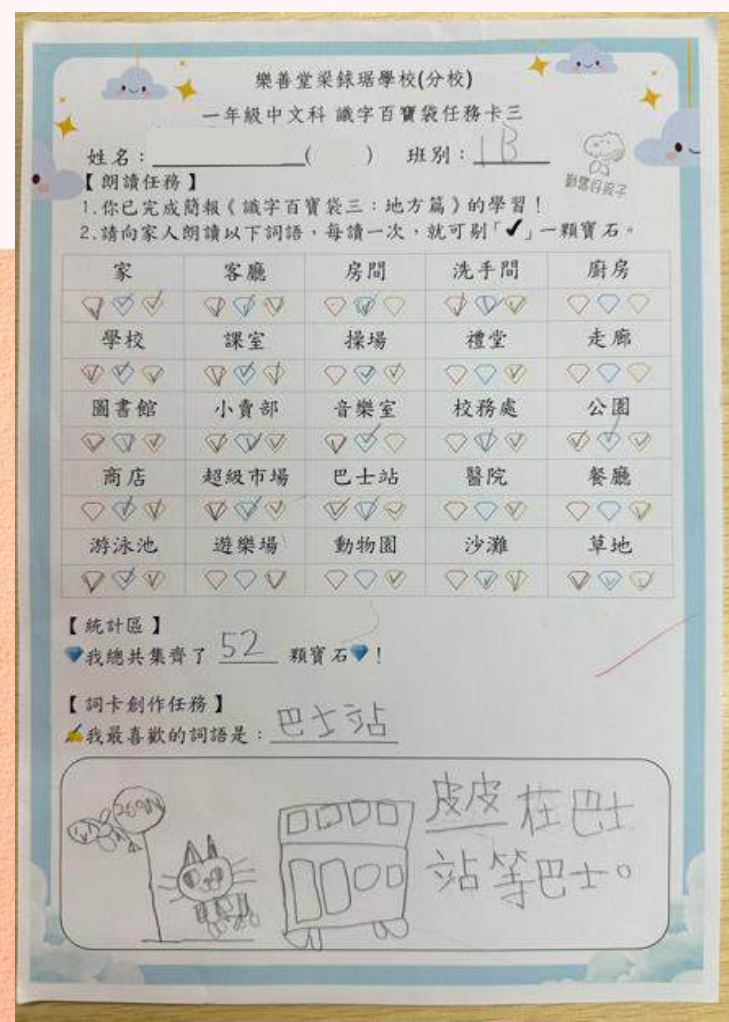 樂善堂梁銶琚學校(分校)
一年級中文科 識字百寶袋任務卡三
姓名：____________( ) 班別：1B
勤奮好孩子
【朗讀任務】
1.你已完成簡報《識字百寶袋三：地方篇》的學習！
2.請向家人朗讀以下詞語，每讀一次，就可剔「✔」一顆寶石。
家 客廳 房間 洗手間 廚房
學校 課室 操場 禮堂 走廊
圖書館 小賣部 音樂室 校務處 公園
商店 超級市場 巴士站 醫院 餐廳
游泳池 遊樂場 動物園 沙灘 草地
【統計區】
我總共集齊了 52 顆寶石！
【詞卡創作任務】
我最喜歡的詞語是：巴士站
269M
皮皮在巴士
站等巴士。